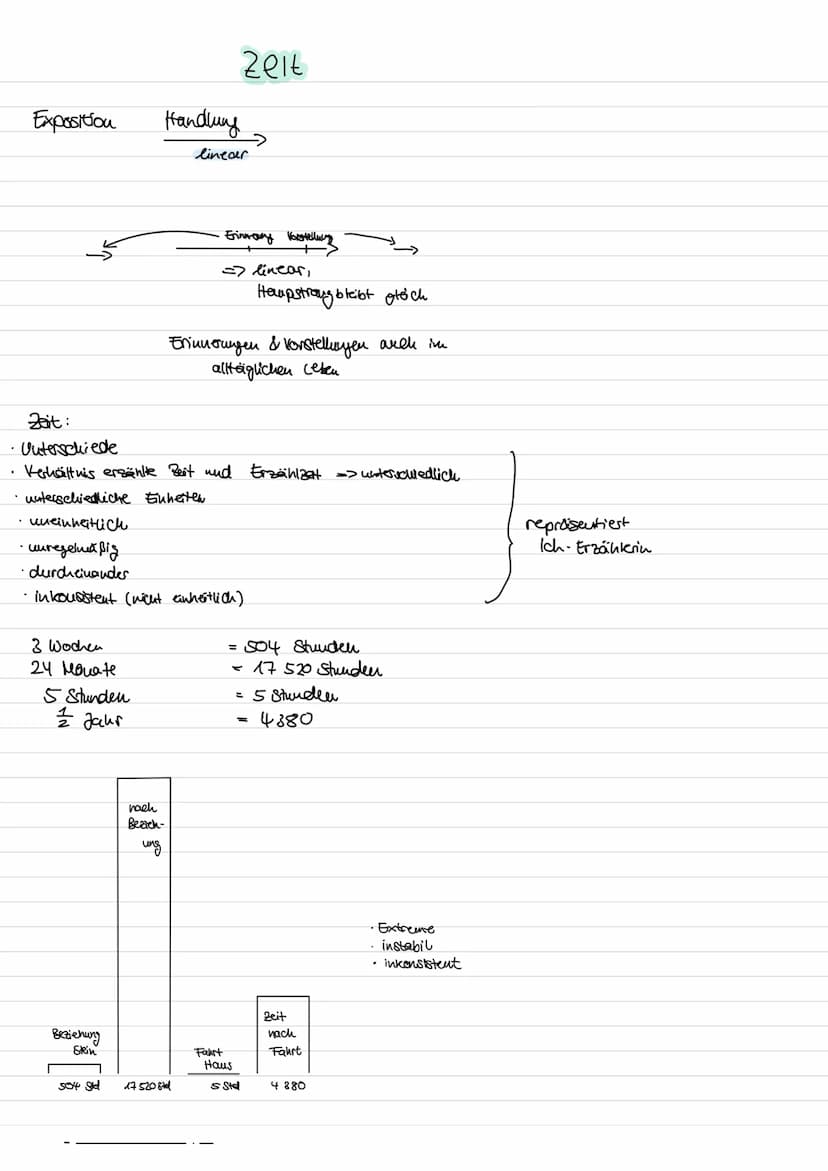 Zeit
Exposition Handlung
linear
Erinnerung Vorstellung
=> linear,
Haupstrang bleibt gleich
Erinnerungen & Vorstellungen auch im
alltäglichen Leben
Zeit:
· Unterschiede
· Verhältnis erzählte Zeit und Erzählzeit => unterschiedlich
· unterschiedliche Einheiten
· uneinheitlich
· unregelmäßig
· durcheinander
· inkonsistent (nicht einheitlich)
repräsentiert
Ich-Erzählerin
3 Wochen = 504 Stunden
24 Monate = 17 520 Stunden
5 Stunden = 5 Stunden
1/2 Jahr = 4380
nach
Bezieh-
ung
· Extreme
· instabil
· inkonsistent
Zeit
nach
Fahrt
Beziehung
Fahrt
Haus
504 Std 17 520 Std 5 Std 4 380